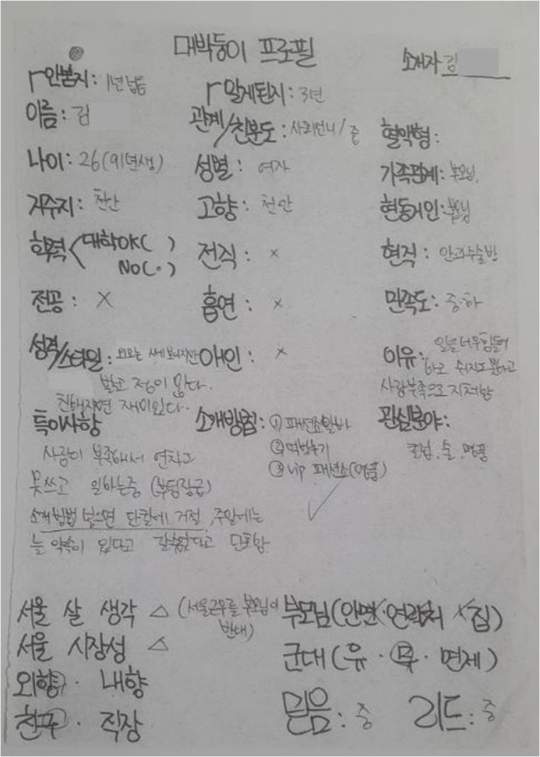 대박둥이 프로필
소개자 김
안본지: 1년넘음 알게된지: 3년
이름: 김 관계/친분도: 사회언니/중 혈액형:
나이: 26(91년생) 성별: 여자 가족관계: 부모님,
거주지: 천안 고향: 천안 현동거인: 부모님
학력 대학OK( ) NO( ) 전직: × 현직: 안과수술방
전공: × 흡연: × 만족도: 중하
성격/스타일: 외모는 쎄보이지만 애인: × 이유: 일을너무힘들어
정이 많다. 하고 쉬지도 못하고
친해지면 재미있다. 사람부족으로 지쳐함
특이사항 소개방법: ① 패션쇼알바 관심분야:
사람이 부족해서 연차도 ② 클럽, 술, 명품
못쓰고 일하는중 ③ vip 패션쇼
소개방법 단칼에 거절, 주말에는
늘 약속이 있다고 단호함
서울 살 생각 △ (서울근무를 부모님이 반대) 부모님(안면·연락처·집)
서울 시장성 △ 군대(유·무·면제)
외향·내향
친구·직장 믿음: 중 리드: 중